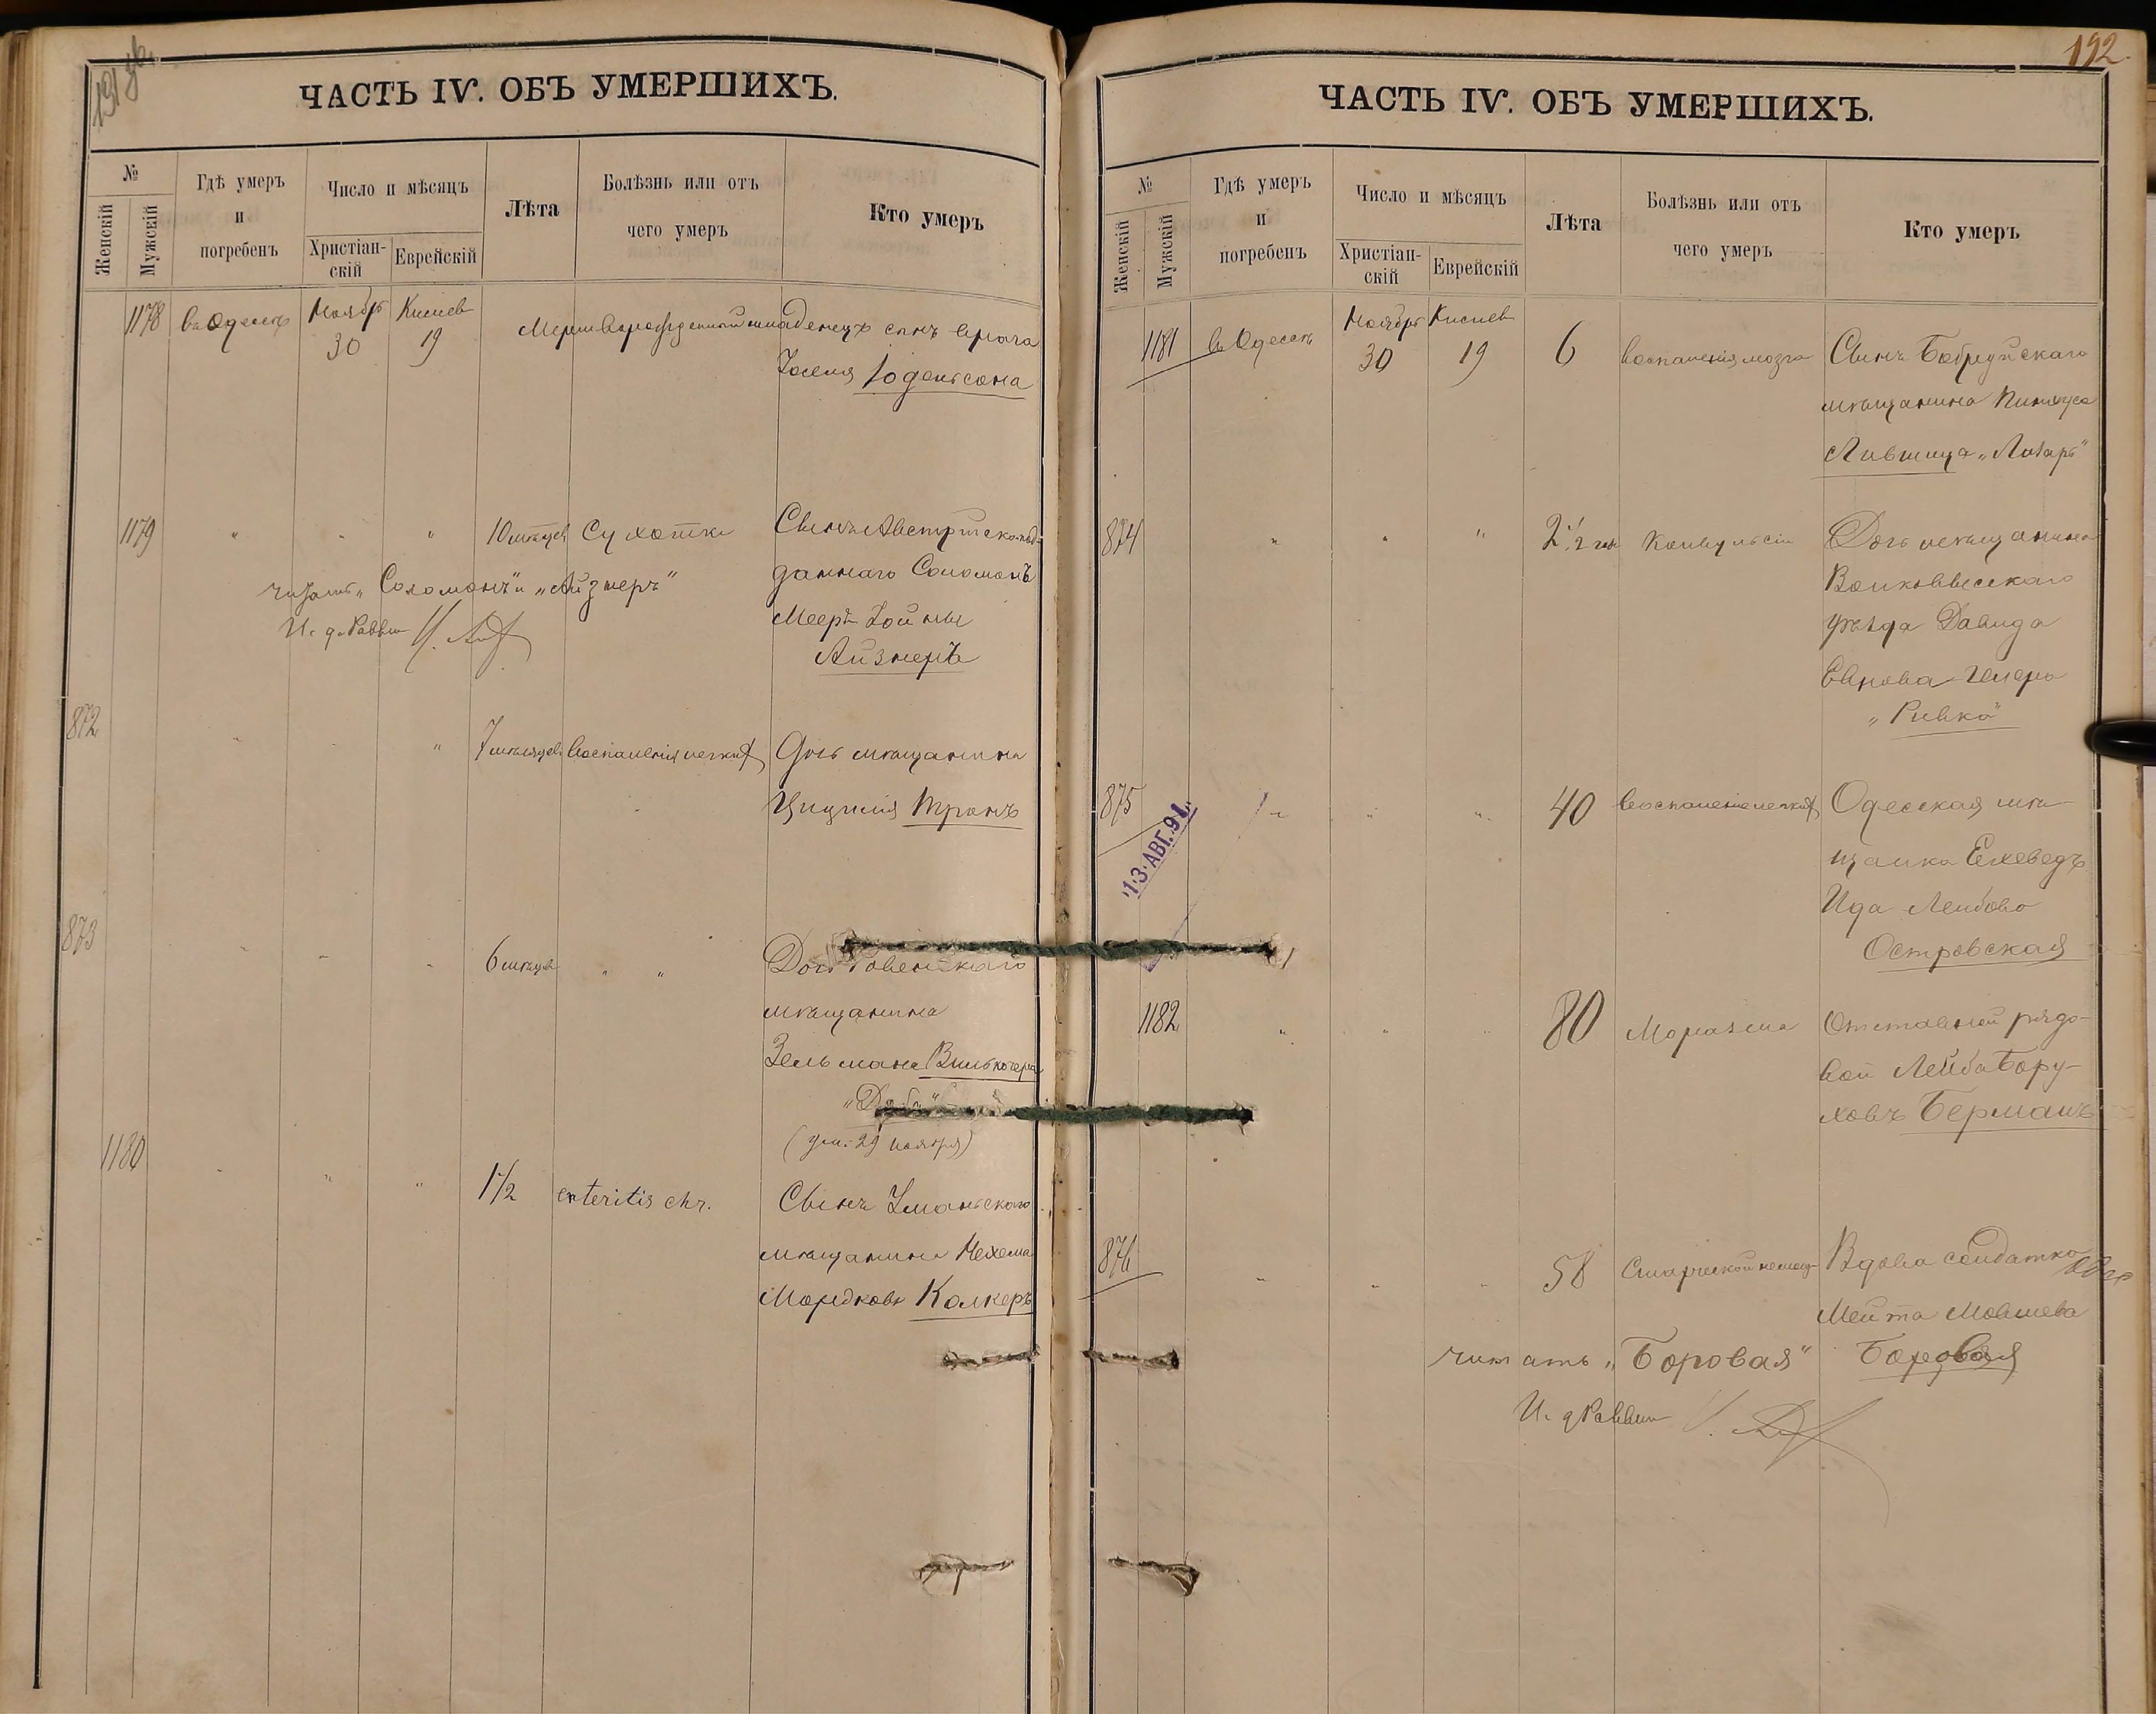 ЧАСТЬ IV. ОБЪ УМЕРШИХЪ.
№
Женскій
Мужскій
Гдѣ умеръ
и
погребенъ
Число и мѣсяцъ
Христіан-
скій
Еврейскій
Лѣта
Болѣзнь или отъ
чего умеръ
Кто умеръ
1178 въ Одессѣ Ноябрь 30 Кислев 19 Мертворожденный младенецъ сынъ врача
Іоселя Юдельсона
1179 " " " 10 мѣсяцев Сухотка Сынъ Австрійско под-
даннаго Соломонъ
Меера Іойны
Айзнеръ
читать „Соломонъ" и „Айзнеръ"
И. д. Раввин
872 " " " 7 мѣсяцев воспаленія легких Дочь мѣщанина
Цицилія Тронъ
873 " " " 6 мѣсяцев " " Дочь Ровенскаго
мѣщанина
Зельмана
(ум. 29 ноября)
1180 " " " 1 1/2 enteritis chr. Сынъ Уманьскаго
мѣщанина Нехема
Мордковъ Колкеръ
192.
ЧАСТЬ IV. ОБЪ УМЕРШИХЪ.
№
Женскій
Мужскій
Гдѣ умеръ
и
погребенъ
Число и мѣсяцъ
Христіан-
скій
Еврейскій
Лѣта
Болѣзнь или отъ
чего умеръ
Кто умеръ
1181 въ Одессѣ Ноябрь 30 Кислев 19 6 воспаленія мозга Сынъ Бобруйскаго
мѣщанина Пинкуса
Лившица „Лазарь"
874 " " " 2 1/2 Конвульсіи Дочь мѣщанина
Волковысскаго
уѣзда Давида
„Ривка"
875 " " " 40 воспаленіе легких Одесская мѣ-
щанка Ехеведъ
Ида Лейбова
Островская
13 АВГ. 91
1182 " " " 80 Маразма Отставной рядо-
вой Лейба Бору-
ховъ Берманъ
876 " " " 58 Старческой немощи Вдова солдатка
Мейта Мовшева
Боровая
читать „Боровая"
И. д. Раввин